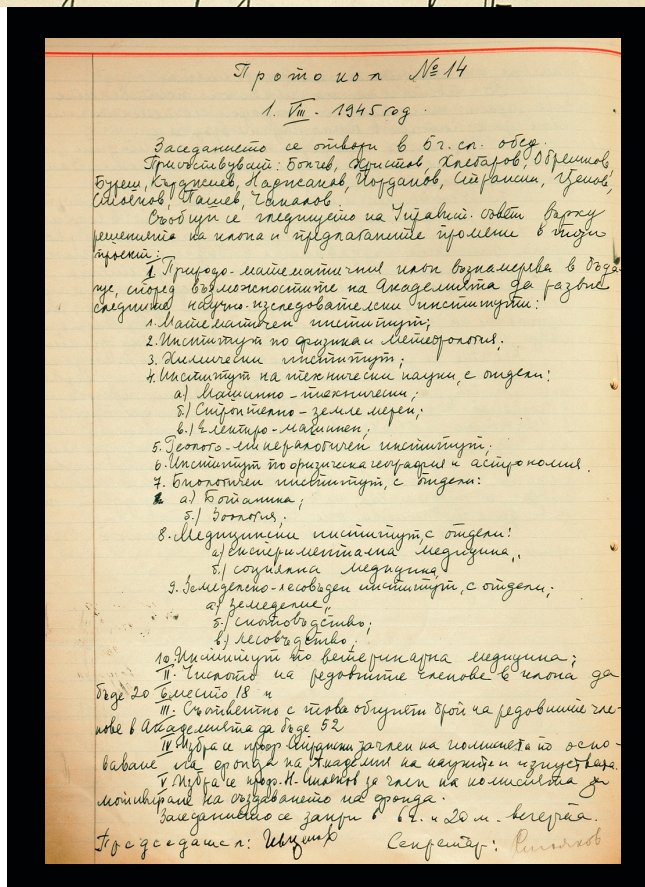 Протокол № 14
1. VIII. 1945 год.
Заседанието се отвори в 5 г. сл. обед.
Присъствуват: Бончев, Христов, Хлебаров, Обрешков,
Буреш, Кърджиев, Наджаков, Йорданов, Странски, Ценов,
Стоянов, Ташев, Чакалов.
Съобщи се гледището на Управит. съвет върху
решенията на клона и предлаганите промени в този
проект:
I. Природо-математичния клон възнамерява в бъдa-
ще, според възможностите на Академията да развие
следните научно-изследователски институти:
1. Математичен институт;
2. Институт по физика и метеорология;
3. Химически институт;
4. Институт на технически науки, с отдели:
а) Машинно-технически;
б) Строително-земле мерен;
в.) Електро-машинен;
5. Геолого-минераложичен институт;
6. Институт по физическа география и астрономия.
7. Биологичен институт, с отдели:
а.) Ботаника;
б.) Зоология;
8. Медицински институт, с отдели:
а) експериментална медицина,
б.) социална медицина
9. Земеделско-лесовъден институт, с отдели;
а) земеделие,
б) скотовъдство;
в) лесовъдство;
10. Институт по ветеринарна медицина;
II. Числото на редовните членове в клона да
бъде 20 вместо 18 и
III. Съответно с това общият брой на редовните чле-
нове в Академията да бъде 52
IV Избра се проф. Странски за член на комисията по осно-
ваване на фонда на Академия на науките и изкуствата.
V Избра се проф. Н. Стоянов за член на комисията за
мотивиране на създаването на фонда.
Заседанието се закри в 6 г. и 20 м. вечерта.
Председател: Секретар: Стоянов